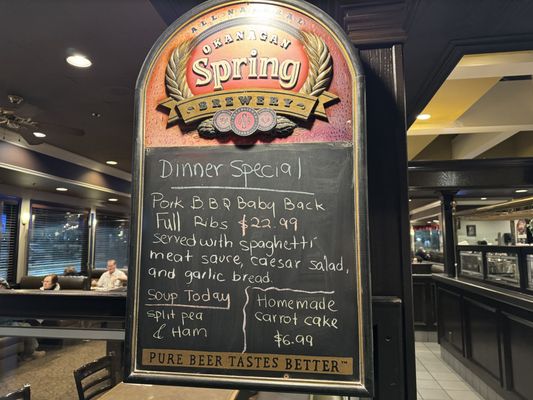 ALL NATURAL
OKANAGAN
Spring
BREWERY
Dinner Special
Pork B B Q Baby Back
Full Ribs $22.99
served with spaghetti
meat sauce, caesar salad,
and garlic bread.
Soup Today
split pea
& Ham
Homemade
carrot cake
$6.99
PURE BEER TASTES BETTER™